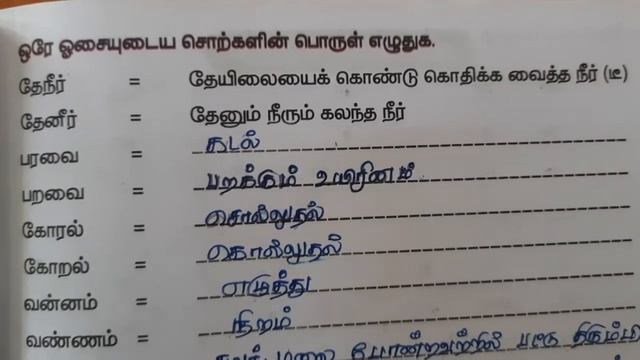 ஒரே ஓசையுடைய சொற்களின் பொருள் எழுதுக.
தேநீர் = தேயிலையைக் கொண்டு கொதிக்க வைத்த நீர் (டீ)
தேனீர் = தேனும் நீரும் கலந்த நீர்
பரவை = கடல்
பறவை = பறக்கும் உயிரினம்
கோரல் = சொல்லுதல்
கோறல் = கொல்லுதல்
வன்னம் = எழுத்து
வண்ணம் = நிறம்
மலை போன்றவற்றில்